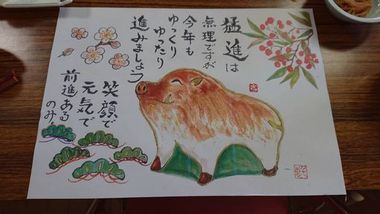 猛進は
無理ですが
今年も
ゆっくり
ゆったり
進みましょう
笑顔で
元気で
前進ある
のみ